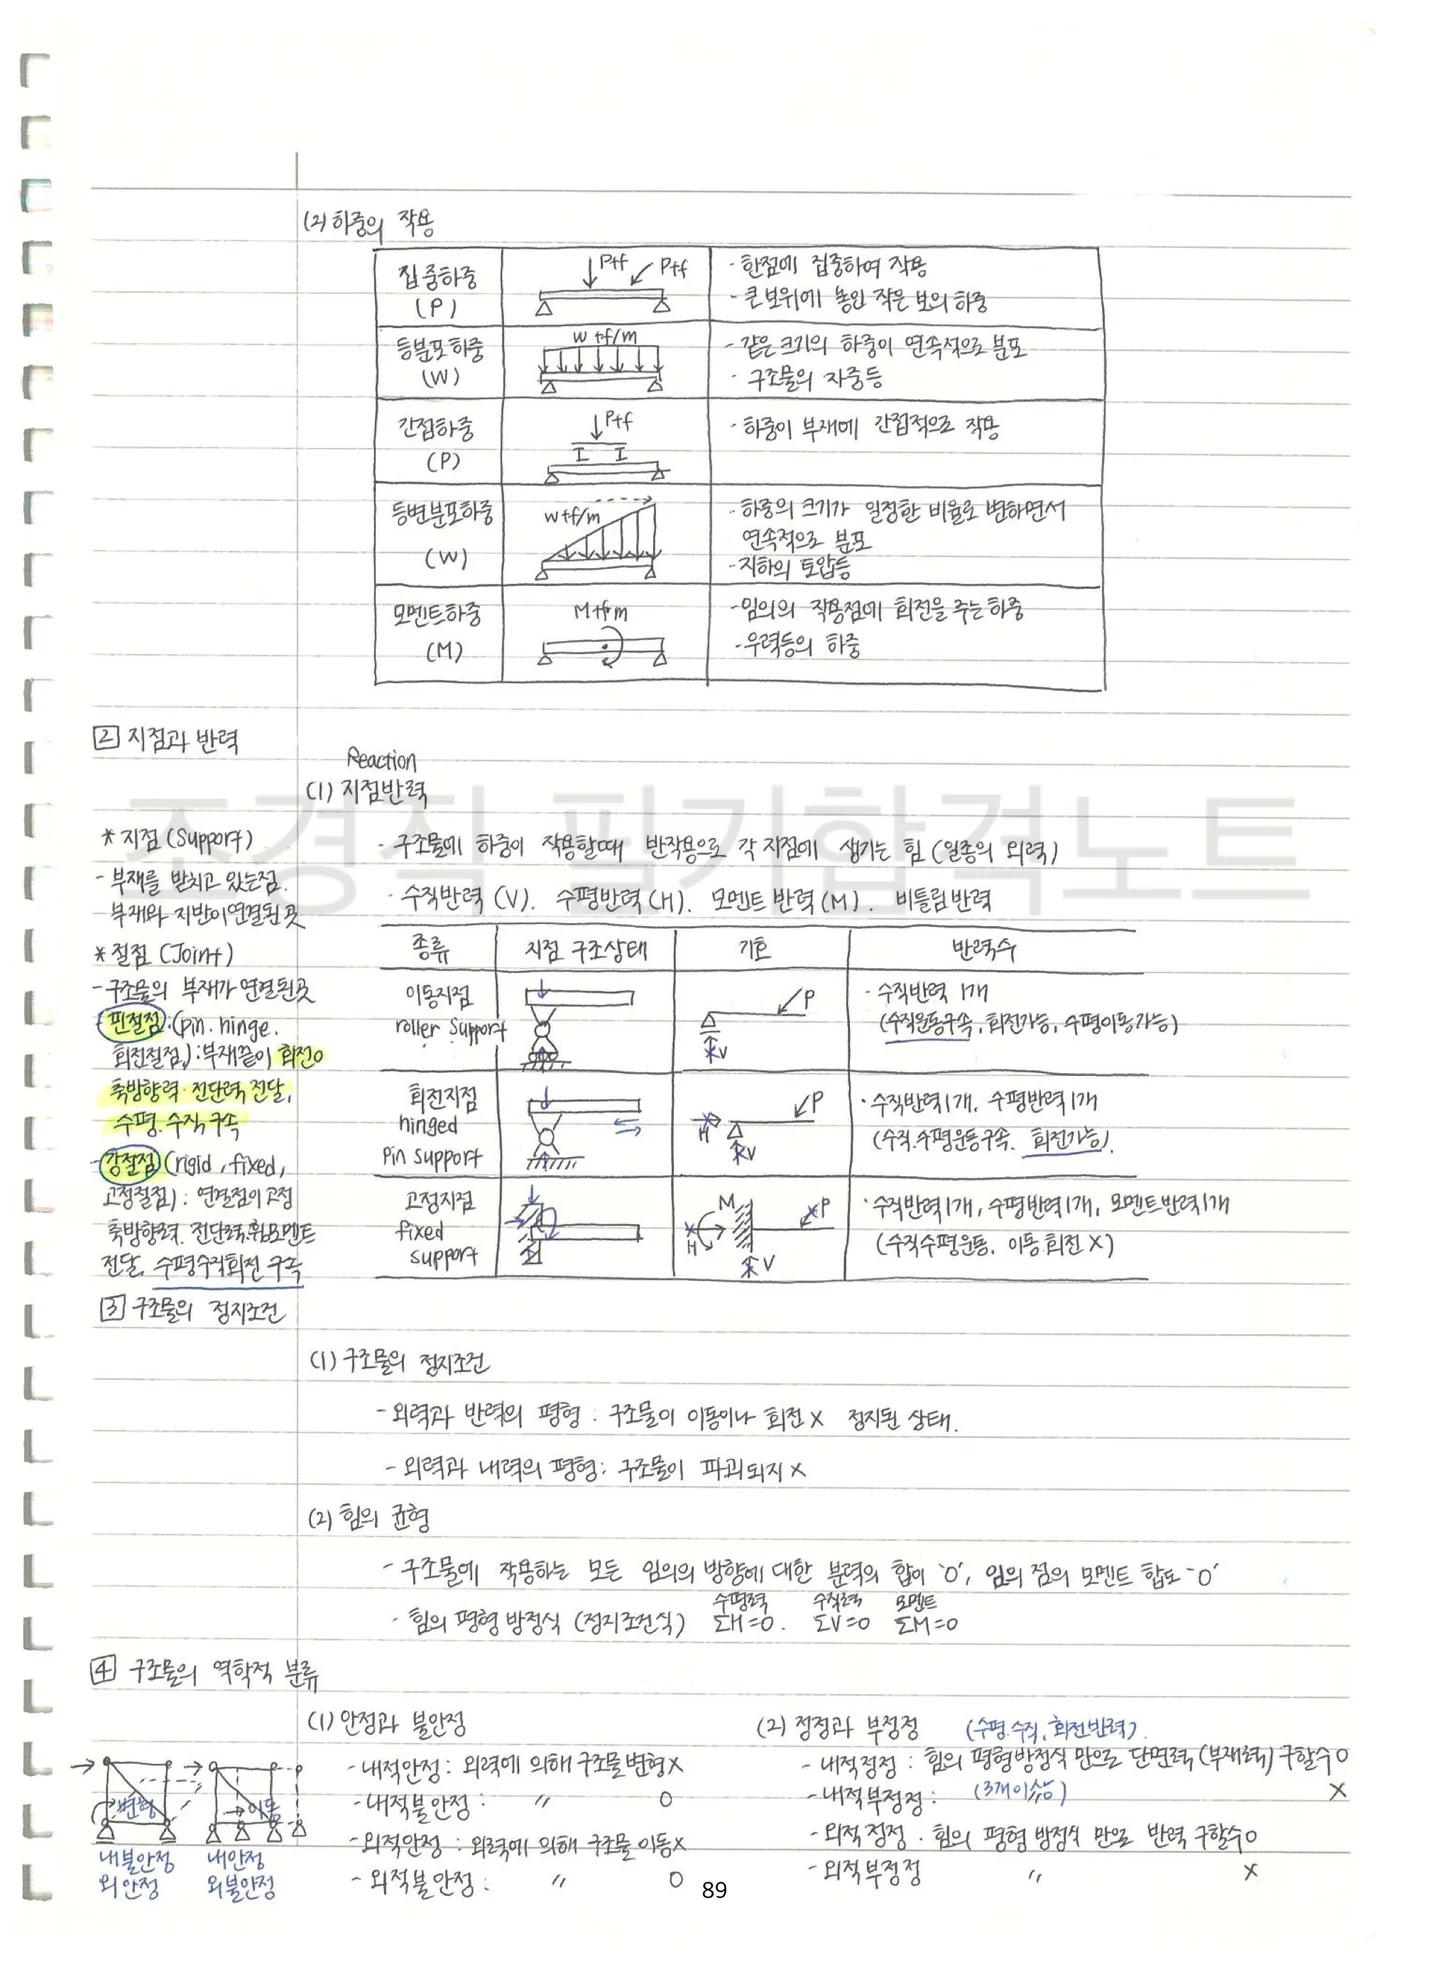 (2) 하중의 작용
집중하중
(P)
Ptf
Ptf
- 한점에 집중하여 작용
- 큰 보위에 놓인 작은 보의 하중
등분포하중
(W)
w tf/m
- 같은 크기의 하중이 연속적으로 분포
- 구조물의 자중등
간접하중
(P)
Ptf
- 하중이 부재에 간접적으로 작용
등변분포하중
(W)
wtf/m
- 하중의 크기가 일정한 비율로 변하면서
연속적으로 분포
- 지하의 토압등
모멘트하중
(M)
Mtfm
- 임의의 작용점에 회전을 주는 하중
- 우력등의 하중
2 지점과 반력
Reaction
(1) 지점반력
조경직 필기합격노트
* 지점 (Support)
- 부재를 받치고 있는점.
부재와 지반이 연결된 곳
* 절점 (Joint)
- 구조물의 부재가 연결된곳
핀절점 : (pin. hinge.
회전절점) : 부재끝이 회전o
축방향력. 전단력 전달,
수평. 수직 구속
- 강절점 (rigid, fixed,
고정절점) : 연결점이 고정
축방향력. 전단력. 휨모멘트
전달, 수평수직회전 구속
- 구조물에 하중이 작용할때 반작용으로 각 지점에 생기는 힘 (일종의 외력)
- 수직반력 (V). 수평반력 (H). 모멘트 반력 (M). 비틀림반력
종류 지점 구조상태 기호 반력수
이동지점
roller support
P
V
· 수직반력 1개
(수직운동구속, 회전가능, 수평이동가능)
회전지점
hinged
pin support
P
H
V
· 수직반력 1개, 수평반력 1개
(수직.수평운동구속. 회전가능).
고정지점
fixed
support
M
P
H
V
· 수직반력 1개, 수평반력 1개, 모멘트반력 1개
(수직수평운동, 이동.회전 X)
3 구조물의 정지조건
(1) 구조물의 정지조건
- 외력과 반력의 평형 : 구조물이 이동이나 회전 X 정지된 상태.
- 외력과 내력의 평형 : 구조물이 파괴되지 X
(2) 힘의 균형
- 구조물에 작용하는 모든 임의의 방향에 대한 분력의 합이 '0', 임의 점의 모멘트 합도 '0'
수평력 수직력 모멘트
- 힘의 평형 방정식 (정지조건식) ΣH=0. ΣV=0 ΣM=0
4 구조물의 역학적 분류
(1) 안정과 불안정
- 내적안정 : 외력에 의해 구조물 변형 X
- 내적불안정 : 〃 O
- 외적안정 : 외력에 의해 구조물 이동 X
- 외적불안정 : 〃 O
변형
이동
내불안정
외안정
내안정
외불안정
(2) 정정과 부정정 (수평. 수직, 회전반력).
- 내적정정 : 힘의 평형방정식 만으로 단면력 (부재력) 구할수 O
- 내적부정정 : (3개이상) 〃 X
- 외적정정 . 힘의 평형 방정식 만으로 반력 구할수 O
- 외적부정정 〃 X
89